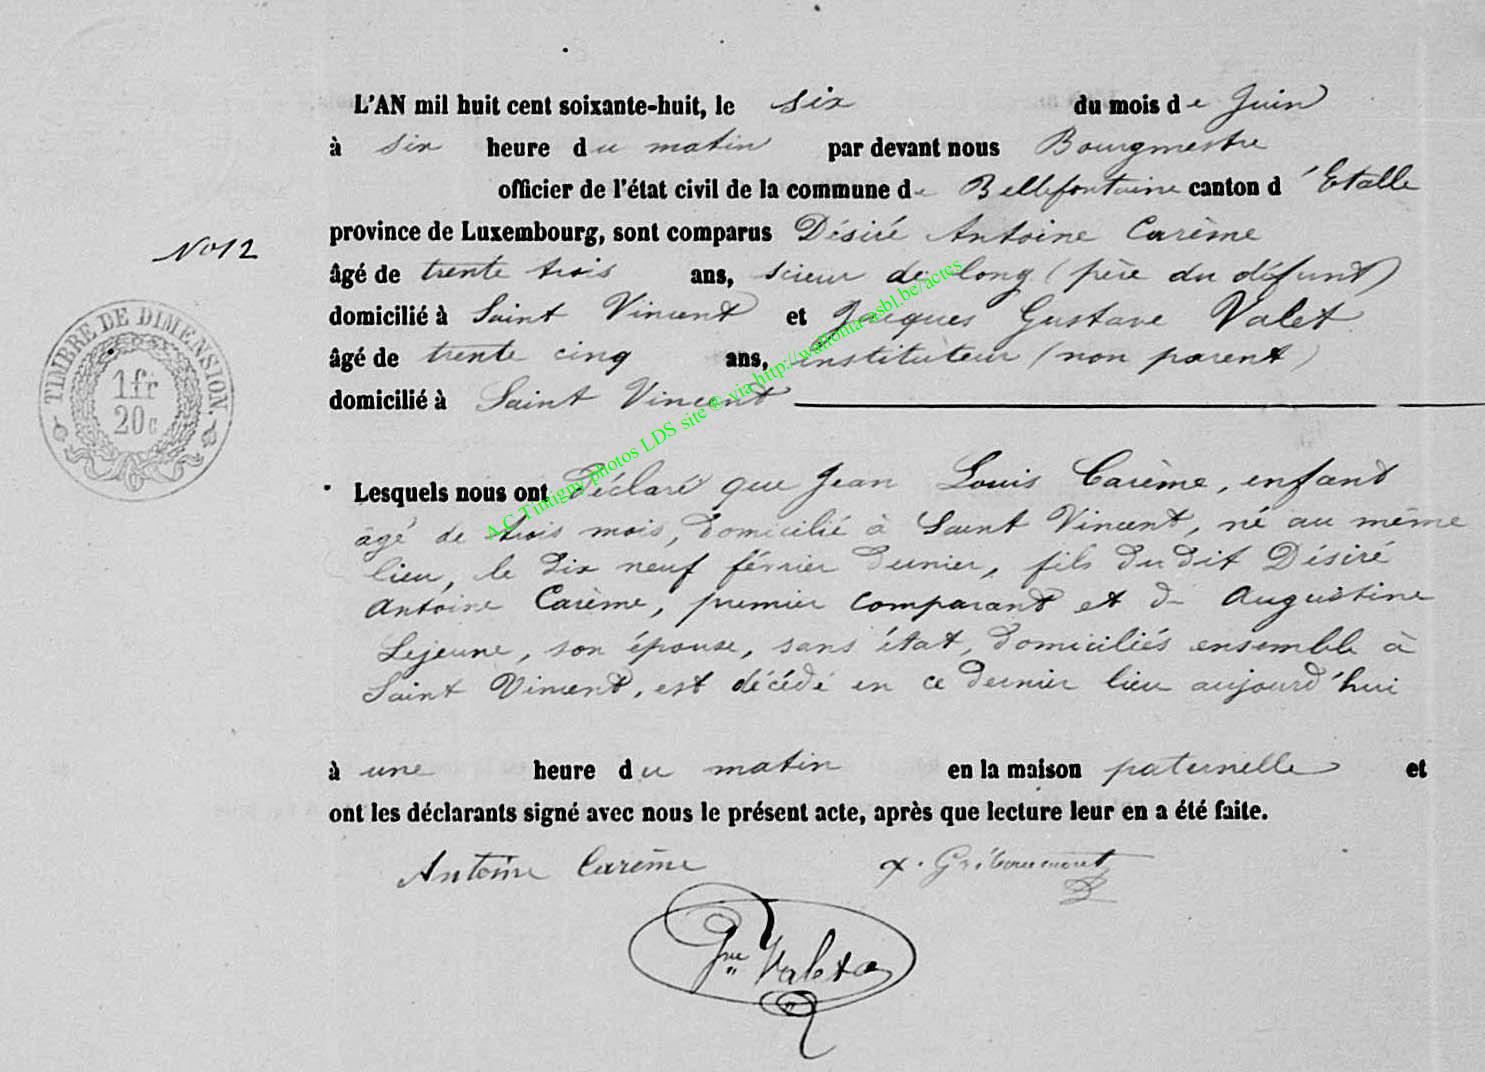 L'AN mil huit cent soixante-huit, le six du mois de Juin
à six heure du matin par devant nous Bourgmestre
officier de l'état civil de la commune de Bellefontaine canton d'Etalle
province de Luxembourg, sont comparus Désiré Antoine Carème
No 12
âgé de trente trois ans, scieur de long (père du défunt)
domicilié à Saint Vincent et Jacques Gustave Valet
âgé de trente cinq ans, instituteur (non parent)
domicilié à Saint Vincent
TIMBRE DE DIMENSION.
1fr
20c
Lesquels nous ont Déclaré que Jean Louis Carème, enfant
âgé de trois mois, domicilié à Saint Vincent, né au même
lieu, le dix neuf février dernier, fils du dit Désiré
Antoine Carème, premier comparant et de Augustine
Lejeune, son épouse, sans état, domiciliés ensemble à
Saint Vincent, est décédé en ce dernier lieu aujourd'hui
à une heure du matin en la maison paternelle et
ont les déclarants signé avec nous le présent acte, après que lecture leur en a été faite.
Antoine Carème Gribaumont
Gve Valet
A.C. Tintigny photos LDS site ® via http://wallonia-asbl.be/actes